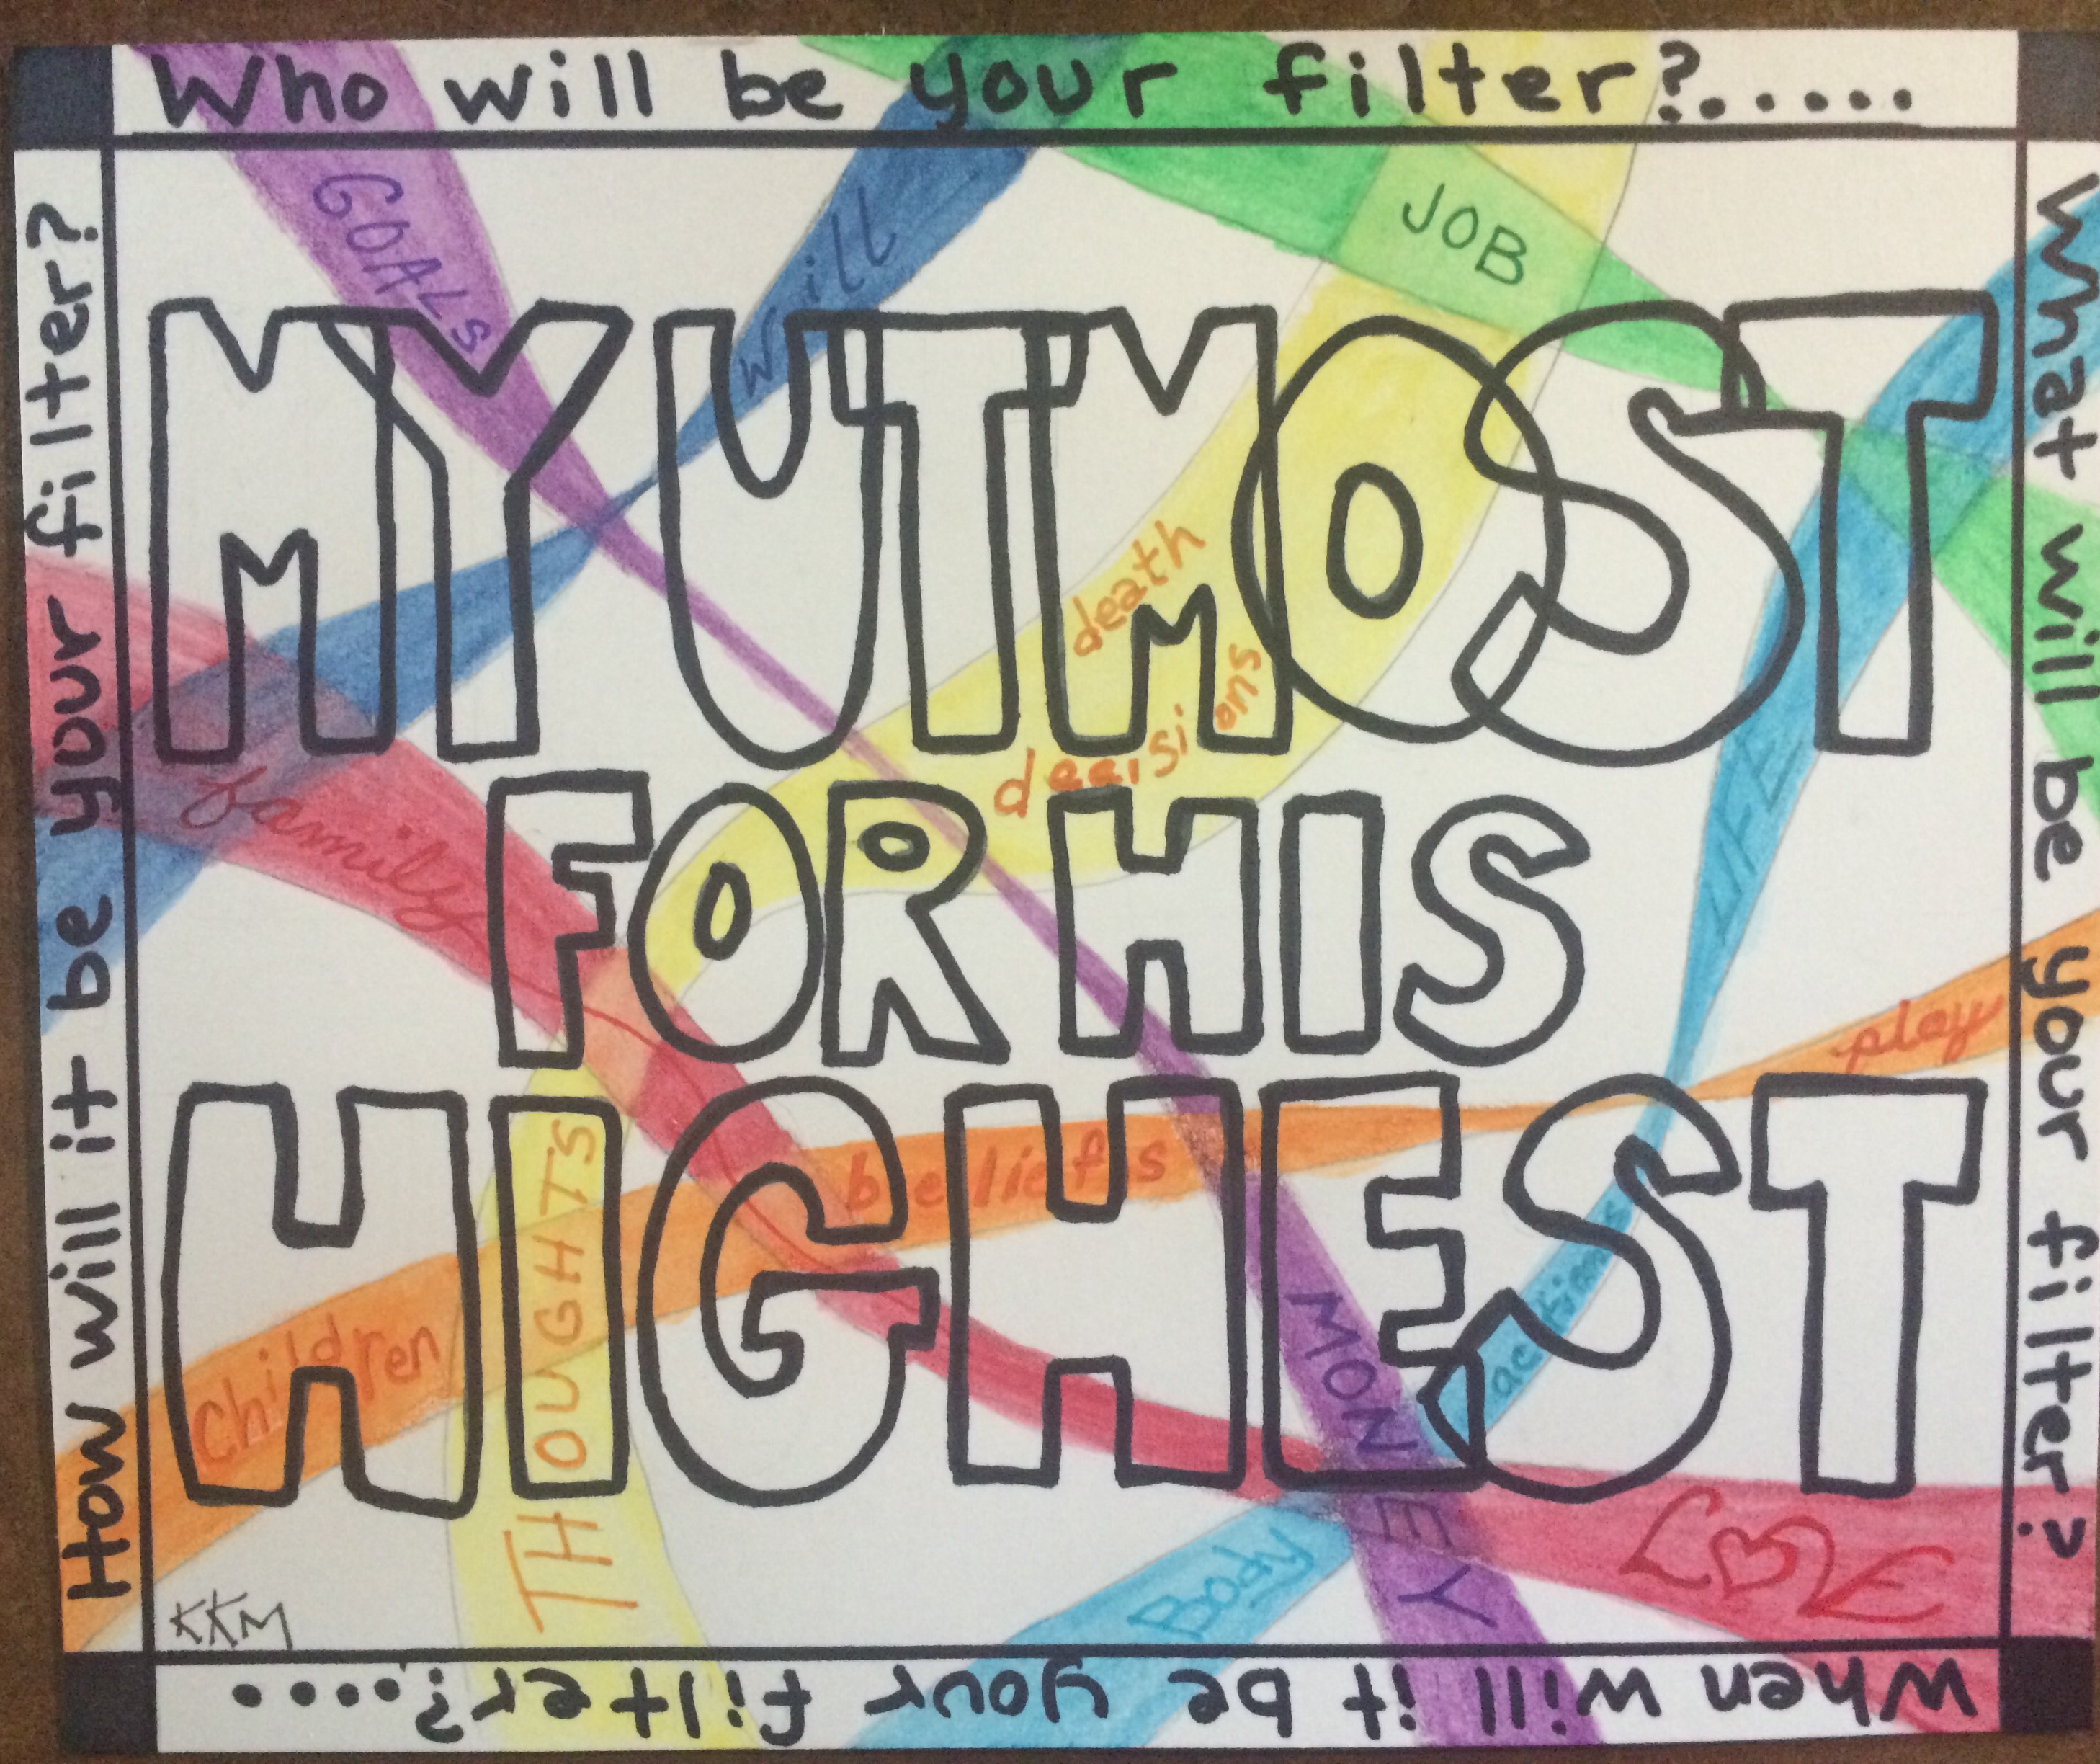 Who will be your filter?.....
What will be your filter?
When will it be your filter?.....
How will it be your filter?
MY UTMOST
FOR HIS
HIGHEST
GOALS
will
JOB
death
decisions
LIFE
family
play
beliefs
THOUGHTS
children
actions
MONEY
Body
LOVE
KKM